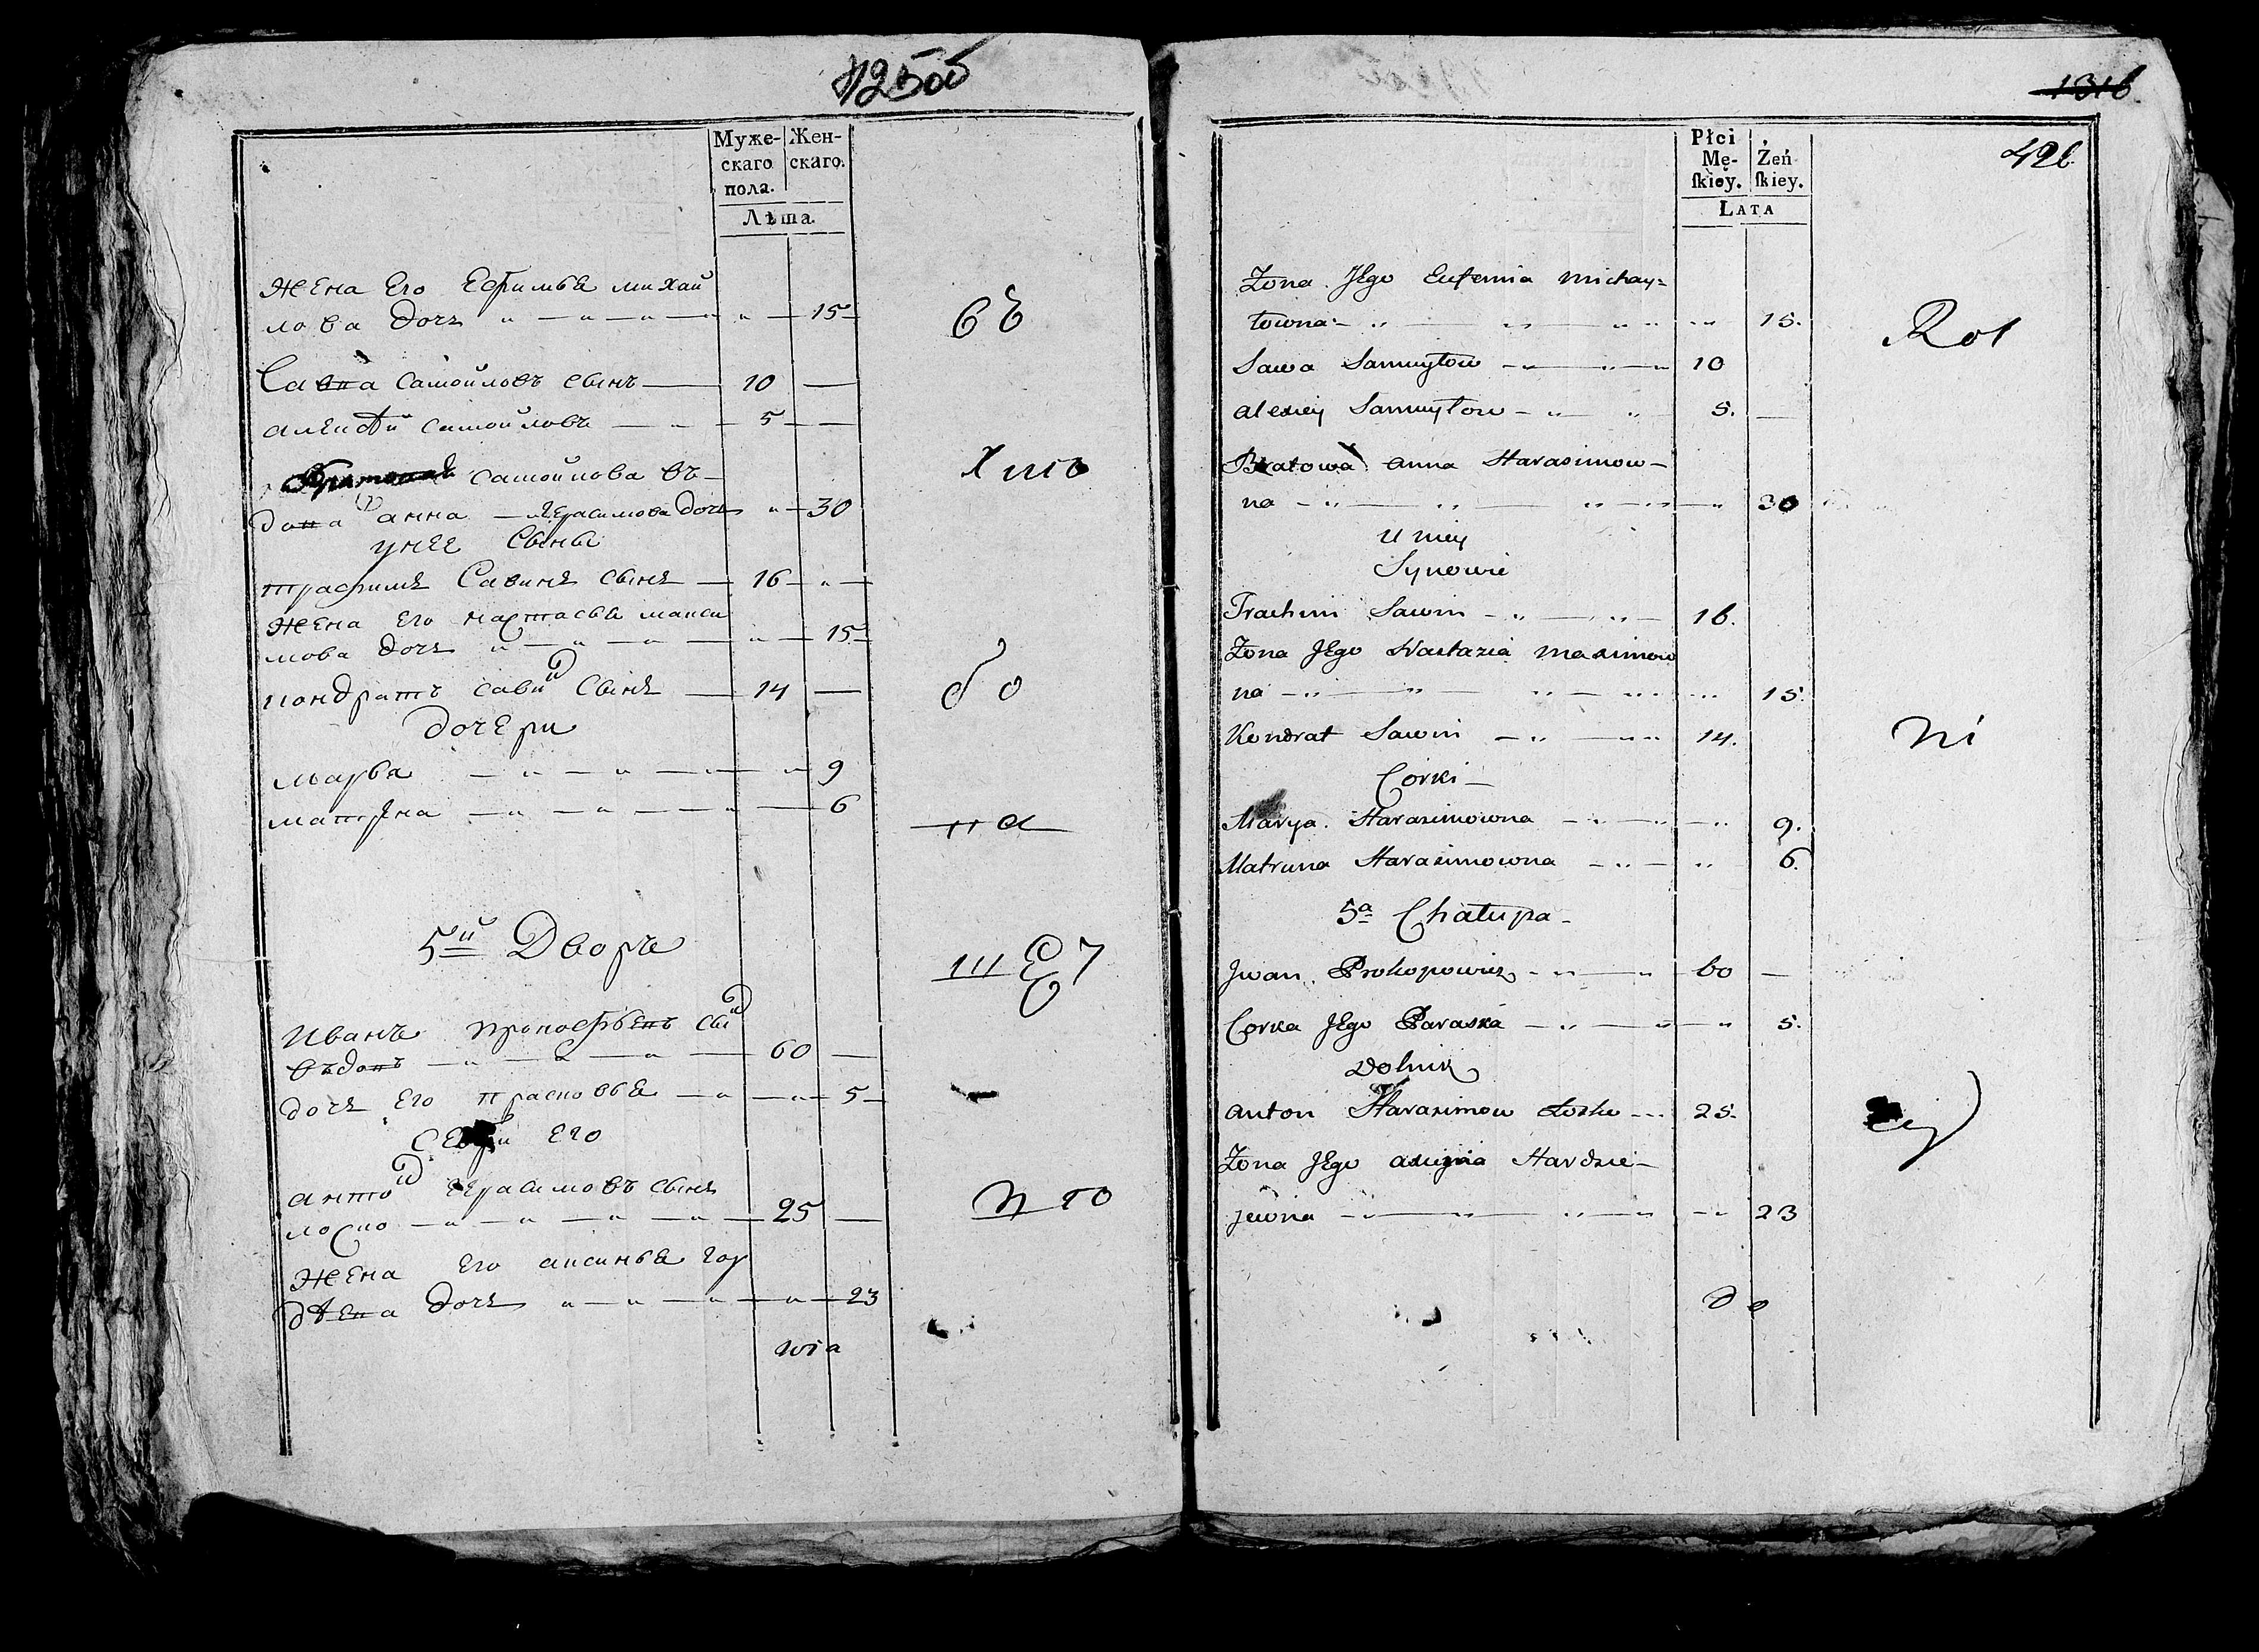 425об
Муже-
скаго
пола.
Жен-
скаго.
Лѣта.
Жена Его Ефимья михай
лова дочь 15
съ
Савва самойловъ сынъ 10
алексѣй самойловъ 5
самойлова въ-
дова анна Герасимова дочь 30
унее сыны
трафимъ Савинъ сынъ 16
Жена Его настасья макси
мова дочь 15
кондратъ Сави сынъ 14
до
дочери
марья 9
матрена 6
на
5й Дворъ
Иванъ прокофьевъ сын
въдовъ 60
дочь Его прасковья 5
Его
анто герасимовъ сынъ
лоско 25
Жена Его аксинья гор
дѣева дочь 23
wia
1316
426
Płci
Mę-
skiey.
Żeń
skiey.
Lata
Żona JEgo Eufemia michay=
łowna 15.
Rot
Sawa Samuyłow 10
alexiey Samuyłow 5.
Bratowa anna Harasimow-
na 30
U niey
Synowie
Trachim Sawin 16.
Żona JEgo Nastazia maximow
na 15.
Kondrat Sawin 14.
ni
Corki
Marya Harasimowna 9.
Matruna Harasimowna 6.
5a Chałupa
Jwan Prokopowicz 60
Corka JEgo Paraska 5.
Dolnik
anton Harasimow Łosko 25.
Żona JEgo axinia Hardzie-
jewna 23
do